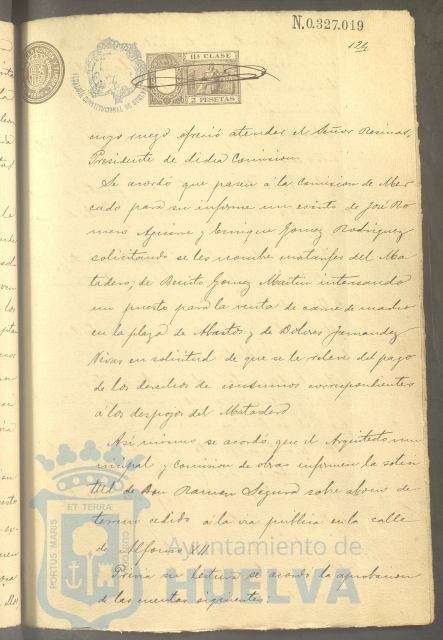 N.0.327.019
124
11ª CLASE
2 PESETAS
cuyo ruego ofreció atender el Señor
Presidente de dicha Comision.
Se acordó que pasen á la Comision de Mer
cado para su informe un escrito de José Ro
mero y Enrique Gomez Rodriguez
solicitando se les nombre matarifes del Ma
tadero; de Benito Gomez Martin interesando
un puesto para la venta de carne de macho
en la plaza de Abastos; y de Dolores Fernandez
Vivas en solicitud de que se le releve del pago
de los derechos de consumos correspondientes
á los despojos del Matadero
Asi mismo se acordó que el Arquitecto mu
nicipal y comision de obras informen la solici
tud de Don Ramon Segura sobre abono de
terreno cedido á la via publica en la calle
de Alfonso XII.
Previa su lectura se acordó la aprobacion
de las cuentas siguientes:
PORTUS MARIS ET TERRÆ CUSTODIA
Ayuntamiento de
HUELVA